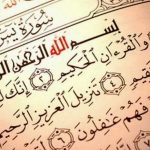 سُورَةُ يسٓ
بِسْمِ ٱللَّهِ ٱلرَّحْمَٰنِ
وَٱلْقُرْءَانِ ٱلْحَكِيمِ ٢ إِنَّكَ
تَنزِيلَ ٱلْعَزِيزِ ٱلرَّحِيمِ
فَهُمْ غَٰفِلُونَ ٦